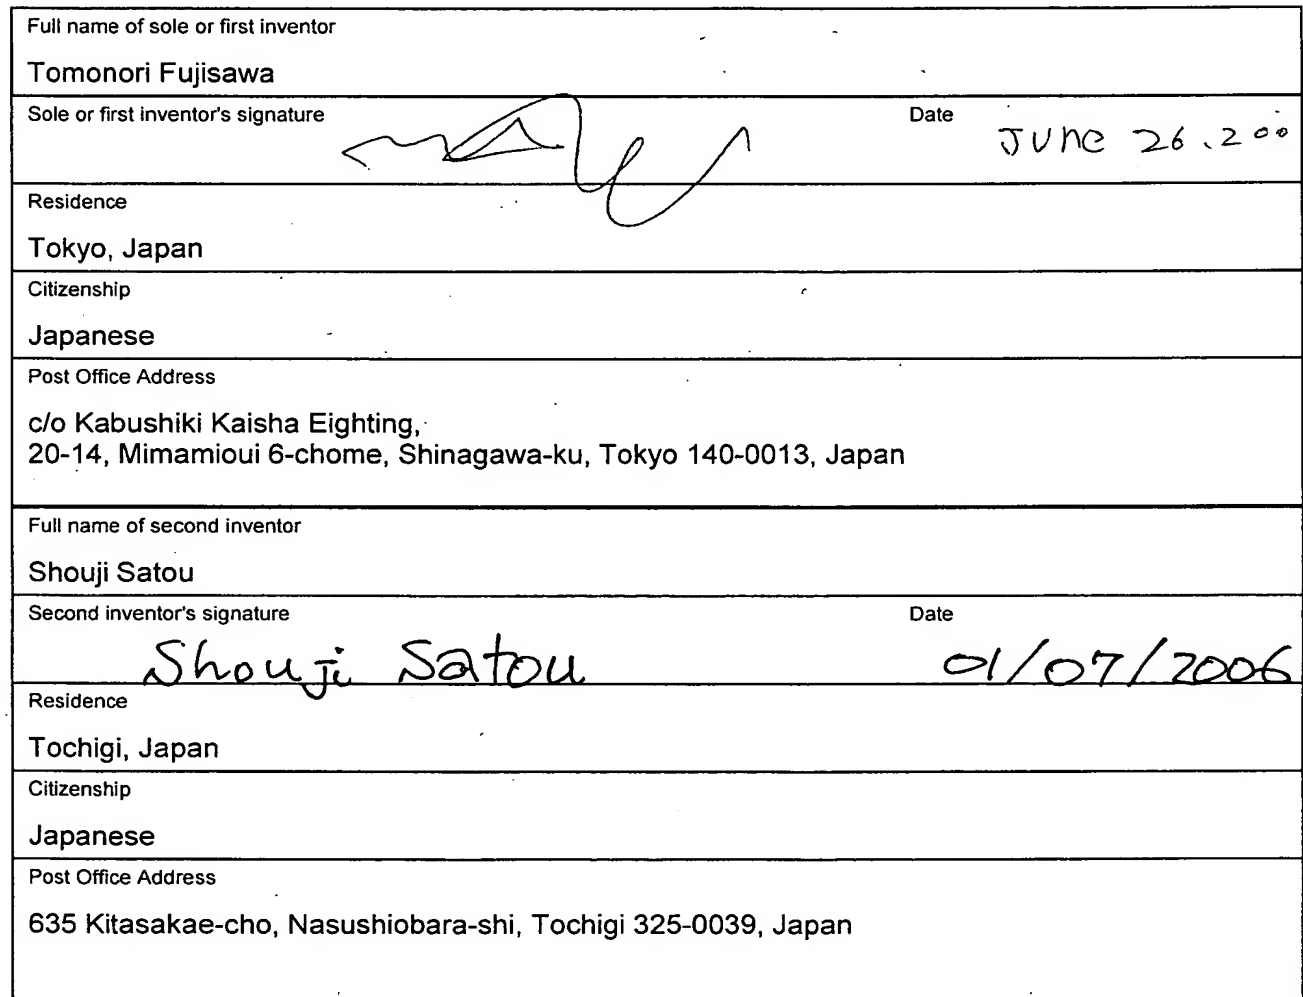 Full name of sole or first inventor
Tomonori Fujisawa
Sole or first inventor's signature
Date
June 26.200
Residence
Tokyo, Japan
Citizenship
Japanese
Post Office Address
c/o Kabushiki Kaisha Eighting,
20-14, Mimamioui 6-chome, Shinagawa-ku, Tokyo 140-0013, Japan
Full name of second inventor
Shouji Satou
Second inventor's signature
Date
Shouji Satou
01/07/2006
Residence
Tochigi, Japan
Citizenship
Japanese
Post Office Address
635 Kitasakae-cho, Nasushiobara-shi, Tochigi 325-0039, Japan